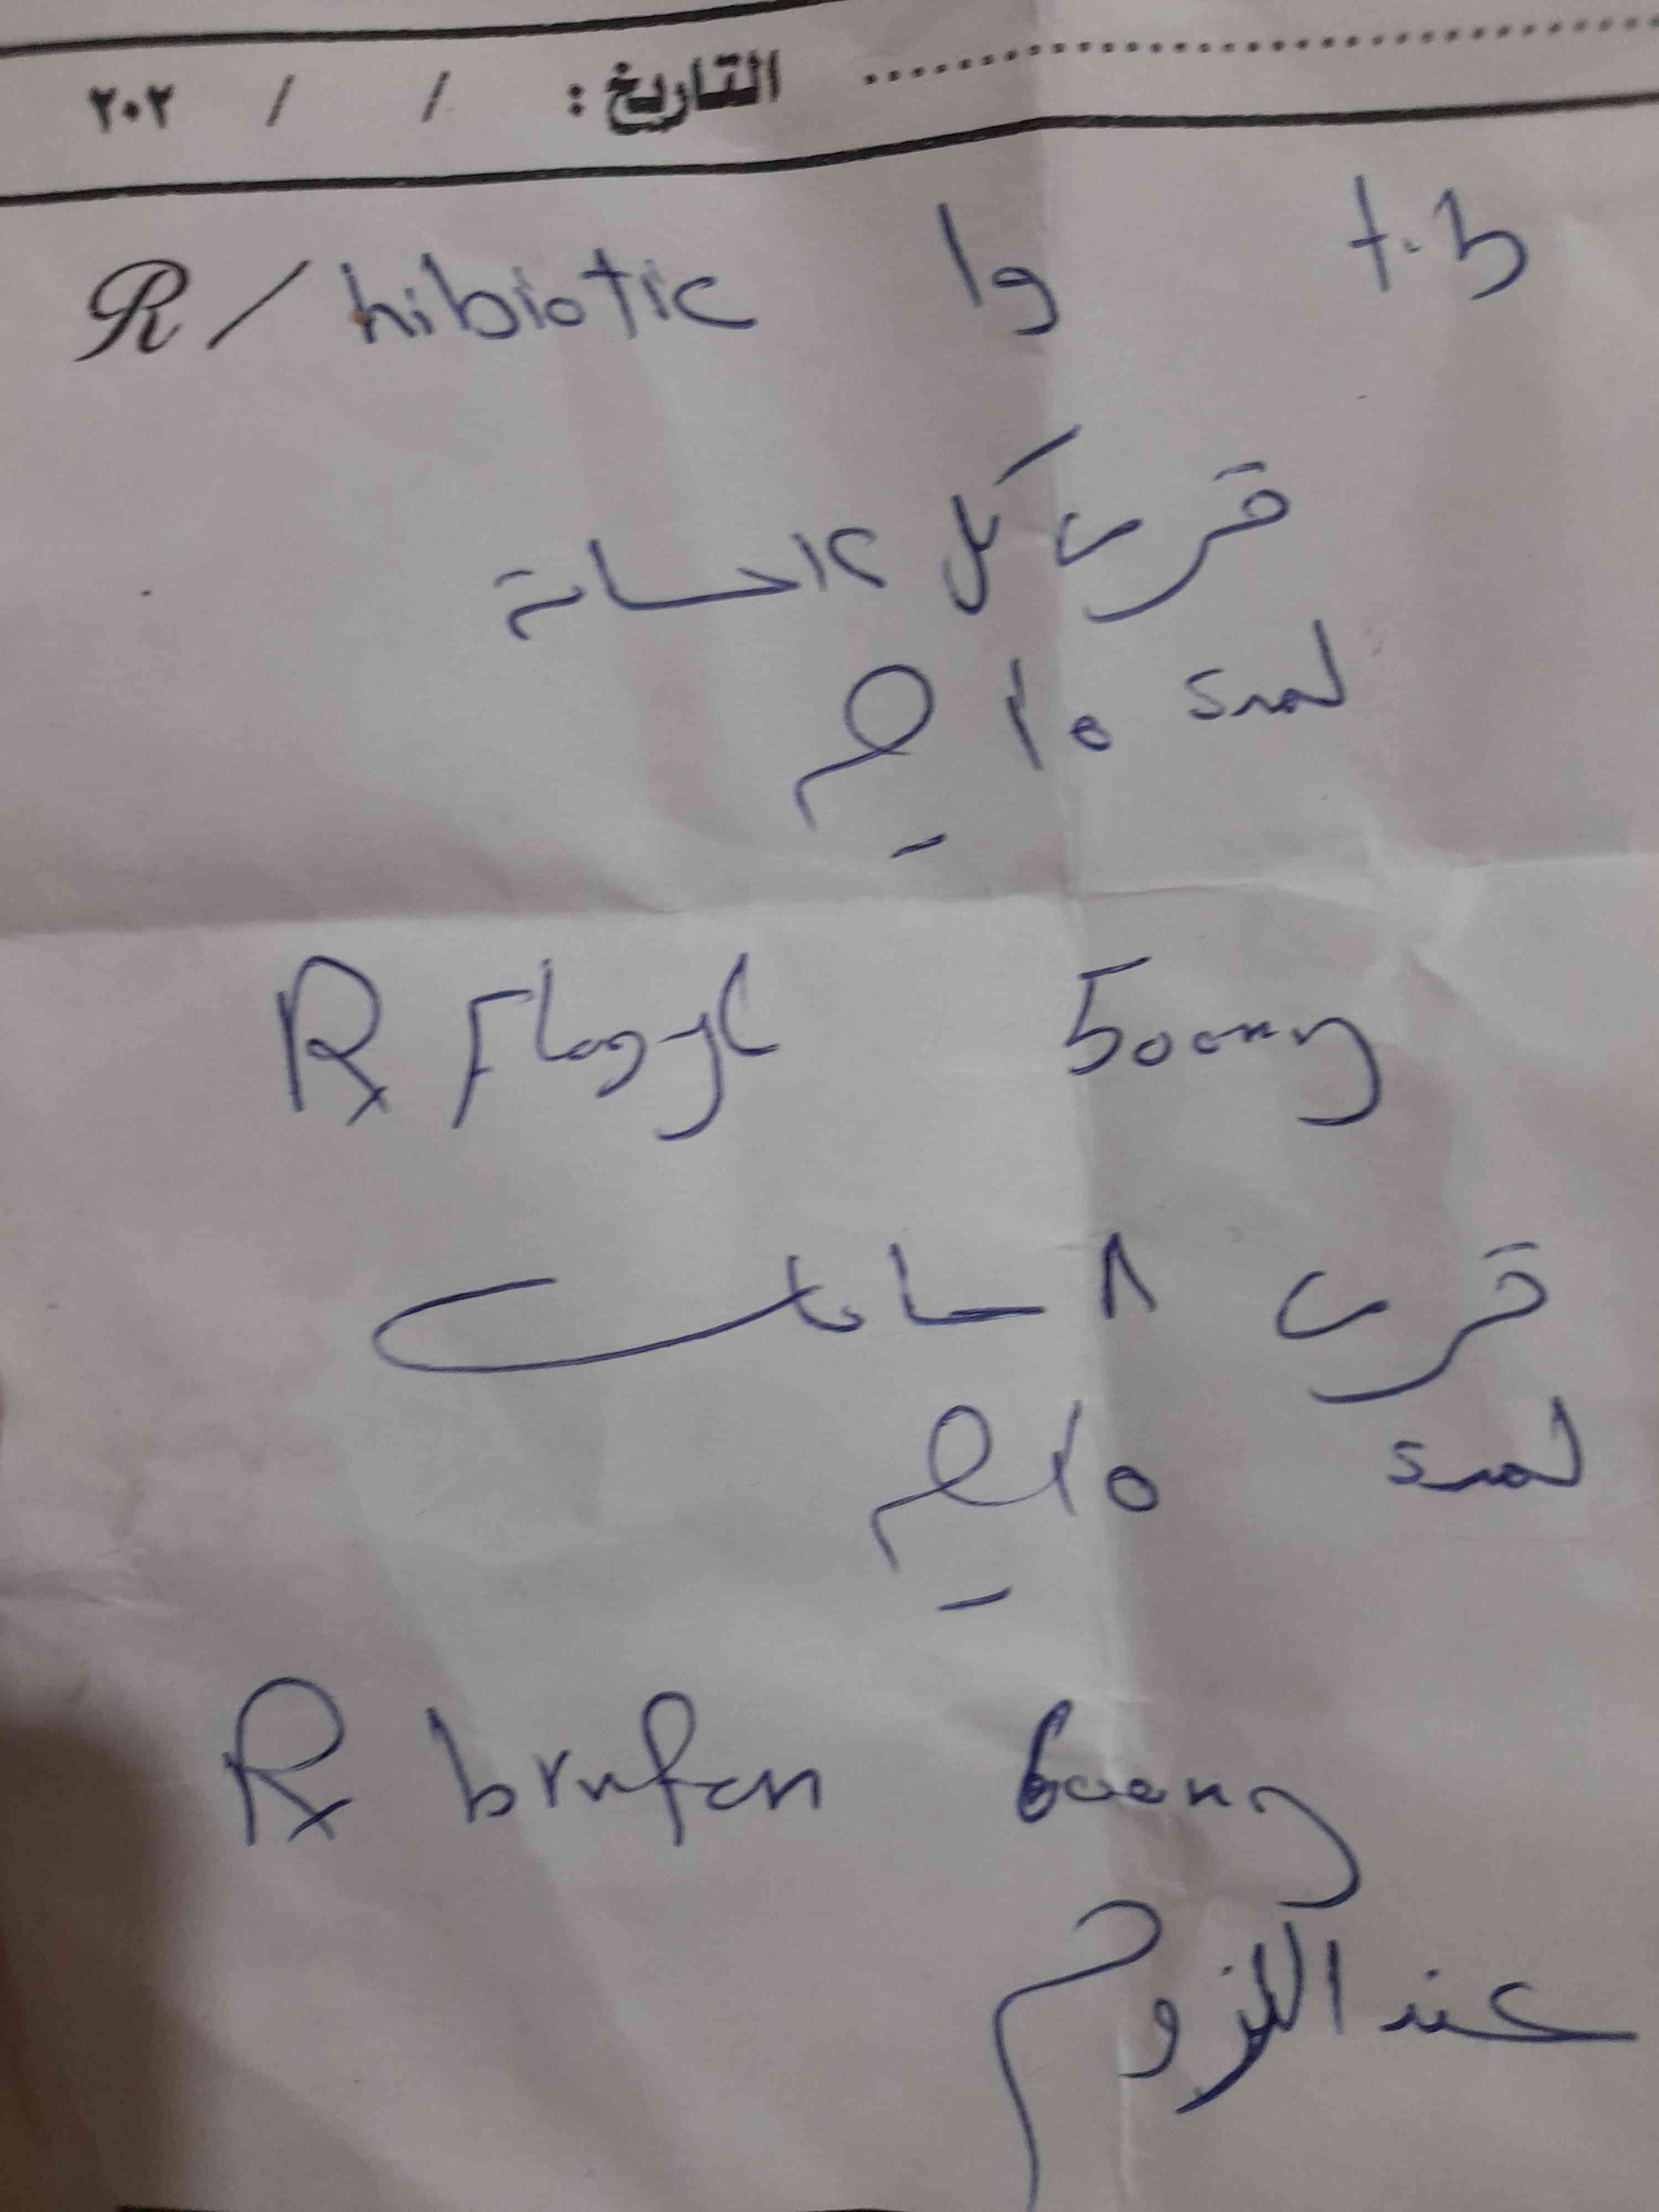 التاريخ: / / ٢٠٢
R/ hibiotic 1g t.b
قرص كل ١٢ ساعة
لمدة ١٥ يوم
Rx Flagyl 500mg
قرص ٨ ساعات
لمدة ١٥ يوم
Rx brufen 600mg
عند اللزوم